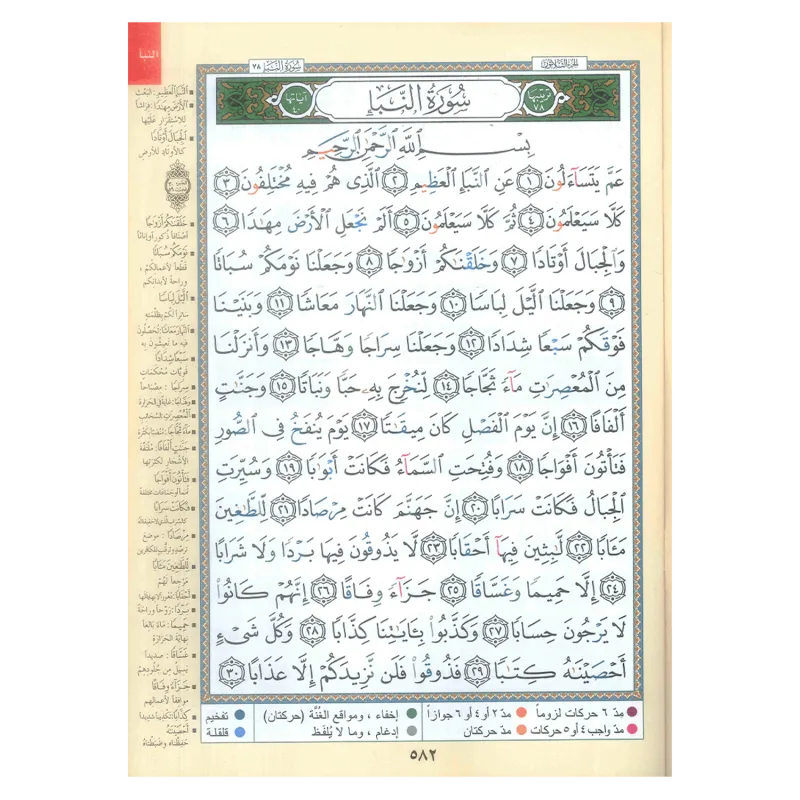 النبأ
الجزء الثلاثون
سورة النبإ ٧٨
ترتيبها ٧٨
سُورَةُ النَّبَإِ
آياتها ٤٠
بِسْمِ ٱللَّهِ ٱلرَّحْمَٰنِ ٱلرَّحِيمِ
عَمَّ يَتَسَآءَلُونَ ١ عَنِ ٱلنَّبَإِ ٱلْعَظِيمِ ٢ ٱلَّذِى هُمْ فِيهِ مُخْتَلِفُونَ ٣
كَلَّا سَيَعْلَمُونَ ٤ ثُمَّ كَلَّا سَيَعْلَمُونَ ٥ أَلَمْ نَجْعَلِ ٱلْأَرْضَ مِهَٰدًا ٦
وَٱلْجِبَالَ أَوْتَادًا ٧ وَخَلَقْنَٰكُمْ أَزْوَٰجًا ٨ وَجَعَلْنَا نَوْمَكُمْ سُبَاتًا
٩ وَجَعَلْنَا ٱلَّيْلَ لِبَاسًا ١٠ وَجَعَلْنَا ٱلنَّهَارَ مَعَاشًا ١١ وَبَنَيْنَا
فَوْقَكُمْ سَبْعًا شِدَادًا ١٢ وَجَعَلْنَا سِرَاجًا وَهَّاجًا ١٣ وَأَنزَلْنَا
مِنَ ٱلْمُعْصِرَٰتِ مَآءً ثَجَّاجًا ١٤ لِّنُخْرِجَ بِهِۦ حَبًّا وَنَبَاتًا ١٥ وَجَنَّٰتٍ
أَلْفَافًا ١٦ إِنَّ يَوْمَ ٱلْفَصْلِ كَانَ مِيقَٰتًا ١٧ يَوْمَ يُنفَخُ فِى ٱلصُّورِ
فَتَأْتُونَ أَفْوَاجًا ١٨ وَفُتِحَتِ ٱلسَّمَآءُ فَكَانَتْ أَبْوَٰبًا ١٩ وَسُيِّرَتِ
ٱلْجِبَالُ فَكَانَتْ سَرَابًا ٢٠ إِنَّ جَهَنَّمَ كَانَتْ مِرْصَادًا ٢١ لِّلطَّٰغِينَ
مَـَٔابًا ٢٢ لَّٰبِثِينَ فِيهَآ أَحْقَابًا ٢٣ لَّا يَذُوقُونَ فِيهَا بَرْدًا وَلَا شَرَابًا
٢٤ إِلَّا حَمِيمًا وَغَسَّاقًا ٢٥ جَزَآءً وِفَاقًا ٢٦ إِنَّهُمْ كَانُوا۟
لَا يَرْجُونَ حِسَابًا ٢٧ وَكَذَّبُوا۟ بِـَٔايَٰتِنَا كِذَّابًا ٢٨ وَكُلَّ شَىْءٍ
أَحْصَيْنَٰهُ كِتَٰبًا ٢٩ فَذُوقُوا۟ فَلَن نَّزِيدَكُمْ إِلَّا عَذَابًا ٣٠
النبإ العظيم: البعث
الأرض مهادًا: فراشًا
للاستقرار عليها
الجبال أوتادًا
كالأوتاد للأرض
خلقناكم أزواجًا
أصنافًا ذكورًا وإناثًا
نومكم سباتًا
قطعًا لأعمالكم،
وراحة لأبدانكم
الليل لباسًا
ساترًا لكم بظلمته
النهار معاشًا: تحصلون
فيه ما تعيشون به
سبعًا شدادًا
قويات محكمات
سراجًا: مصباحًا
وهاجًا: غاية في الحرارة
المعصرات: السحائب
ماءً ثجاجًا: منصبًا بكثرة
جنات ألفافًا: ملتفة
الأشجار لكثرتها
فتأتون أفواجًا
فكانت سرابًا
مرصادًا: موضع
للطاغين مآبًا
مرجعًا لهم
بردًا: روحًا وراحة
حميمًا: ماءً بالغًا
نهاية الحرارة
غساقًا: صديدًا
يسيل من جلودهم
جزاءً وفاقًا
موافقًا لأعمالهم
كذابًا: تكذيبًا شديدًا
أحصيناه
حفظناه وضبطناه
مدّ ٦ حركات لزوماً مدّ ٢ أو ٤ أو ٦ جوازاً إخفاء ، ومواقع الغُنَّة (حركتان) تفخيم
مدّ واجب ٤ أو ٥ حركات مدّ حركتان إدغام ، وما لا يُلفَظ قلقلة
٥٨٢